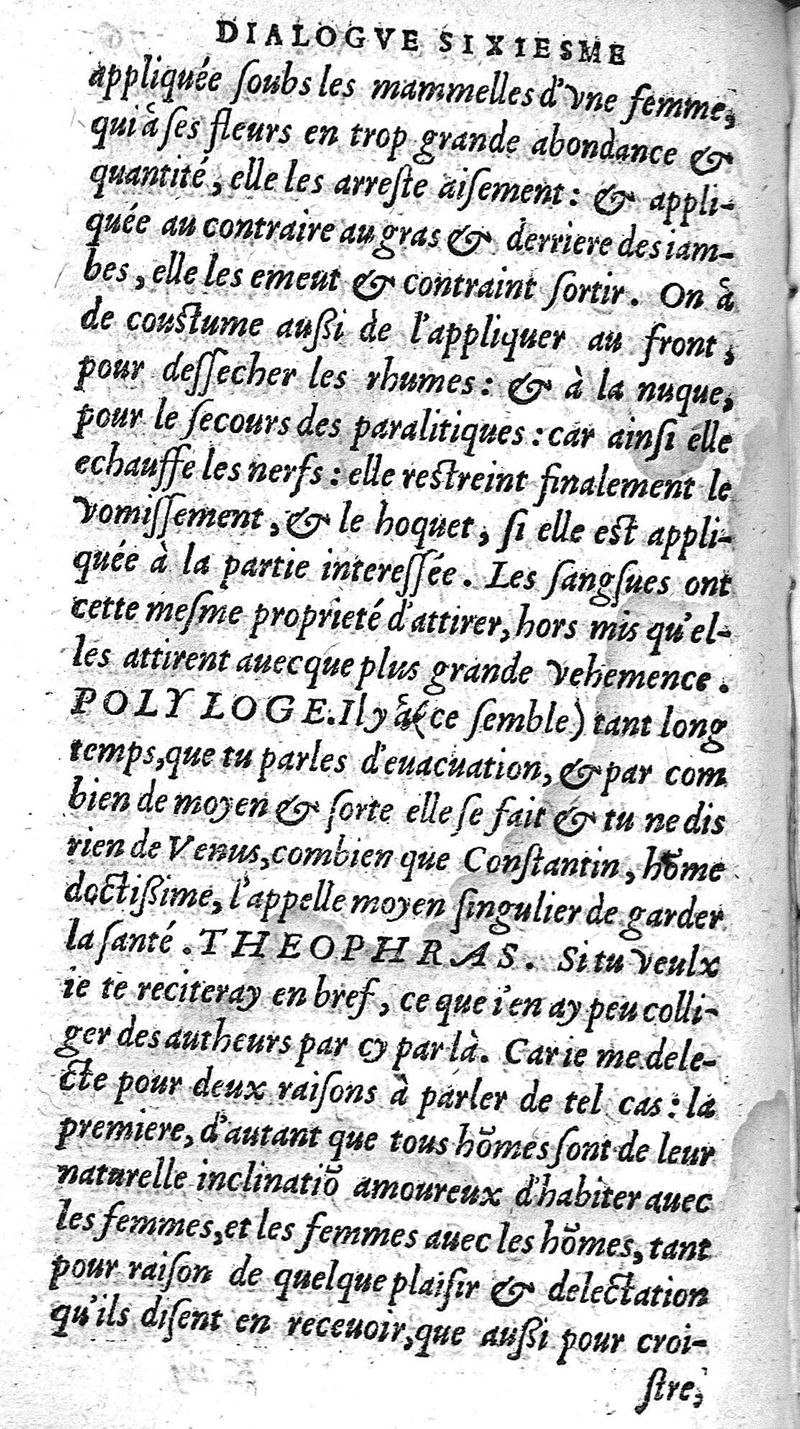 DIALOGVE SIXIESME
appliquée ſoubs les mammelles d'vne femme,
qui à ſes fleurs en trop grande abondance &
quantité, elle les arreſte aiſement: & appli-
quée au contraire au gras & derriere des iam-
bes, elle les emeut & contraint ſortir. On à
de couſtume außi de l'appliquer au front,
pour deſſecher les rhumes: & à la nuque,
pour le ſecours des paralitiques: car ainſi elle
echauffe les nerfs: elle reſtreint finalement le
vomiſſement, & le hoquet, ſi elle eſt appli-
quée à la partie intereſſée. Les ſangſues ont
cette meſme proprieté d'attirer, hors mis qu'el-
les attirent auecque plus grande vehemence.
POLYLOGE. Il y à (ce ſemble) tant long
temps, que tu parles d'euacuation, & par com
bien de moyen & ſorte elle ſe fait & tu ne dis
rien de Venus, combien que Conſtantin, hõme
doctißime, l'appelle moyen ſingulier de garder
la ſanté. THEOPHRAS. Si tu veulx
ie te reciteray en bref, ce que i'en ay peu colli-
ger des autheurs par cy par là. Car ie me dele-
cte pour deux raiſons à parler de tel cas: la
premiere, d'autant que tous hõmes ſont de leur
naturelle inclinatiõ amoureux d'habiter auec
les femmes, et les femmes auec les hõmes, tant
pour raiſon de quelque plaiſir & delectation
qu'ils diſent en receuoir, que außi pour croi-
ſtre,